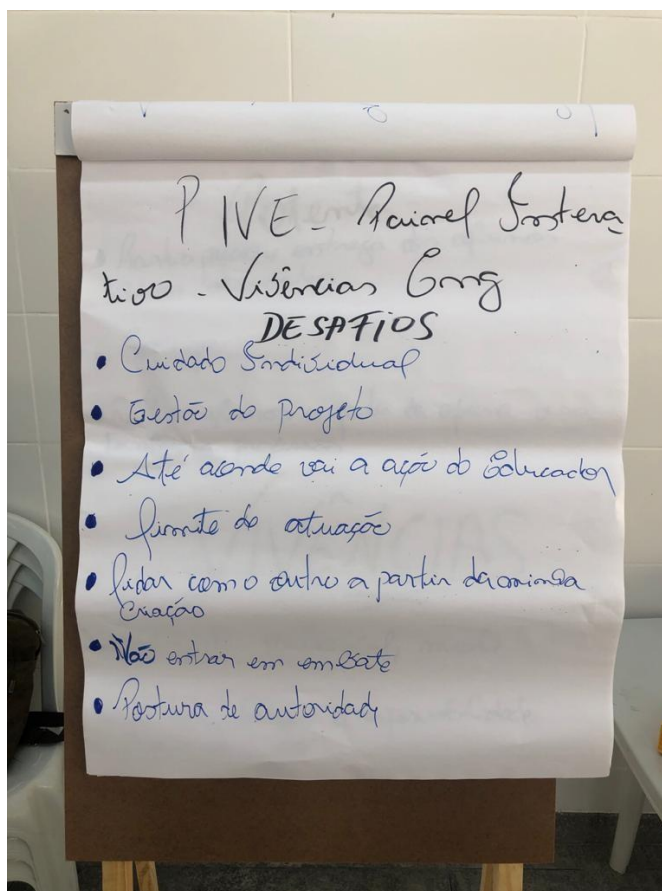 PIVE - Painel Intera
tivo - Vivências Ong
DESAFIOS
• Cuidado Individual
• Gestão do Projeto
• Até aonde vai a ação do Educador
• Limite de atuação
• Lidar com o outro a partir da minha
criação
• Não entrar em embate
• Postura de autoridade